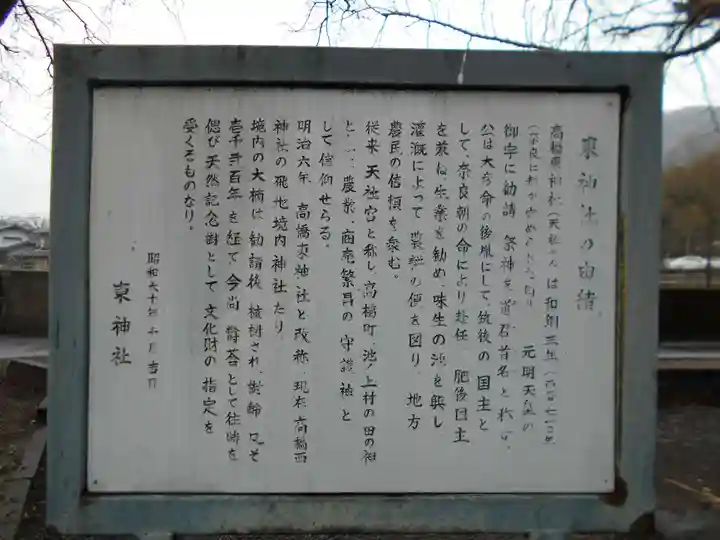 東神社の由緒
高橋東神社（天社さん）は和銅三年（
御宇に勧請 祭神を道君首名と称す。
公は大彦命の後胤にして、筑後の国主と
して、奈良朝の命により赴任 肥後国主
を兼ね 生業を勧め、味生の池を興し
灌漑によって 農耕の便を図り 地方
農民の信頼を象む。
従来 天社宮と称し、高橋町、池ノ上村の田の神
農業、商売繁昌の守護神と
して信仰せらる。
明治六年、高橋東神社と改称、現在高橋西
神社の飛地境内神社たり、
境内の大楠は勧請後 植樹され、樹齢 凡そ
壱千弐百年を経て今尚 欝蒼として往時を
偲び 天然記念樹として 文化財の指定を
受くるものなり。
昭和六十年 十月吉日
東神社